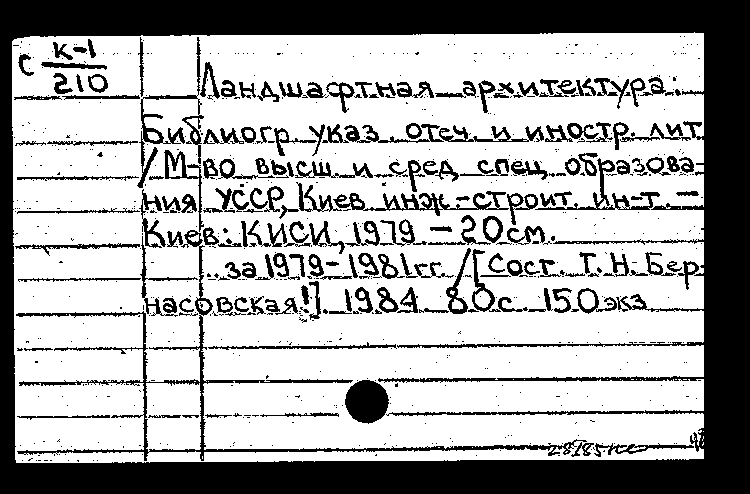 С К-1
210
Ландшафтная архитектура:
Библиогр. указ. отеч. и иностр. лит
/М-во высш и сред спец образова-
ния УССР, Киев инж.-строит. ин-т. —
Киев: КИСИ, 1979 — 20см.
..за 1979-1981гг. / [Сост. Т. Н. Бер-
насовская!]. 1984 80с. 150экз